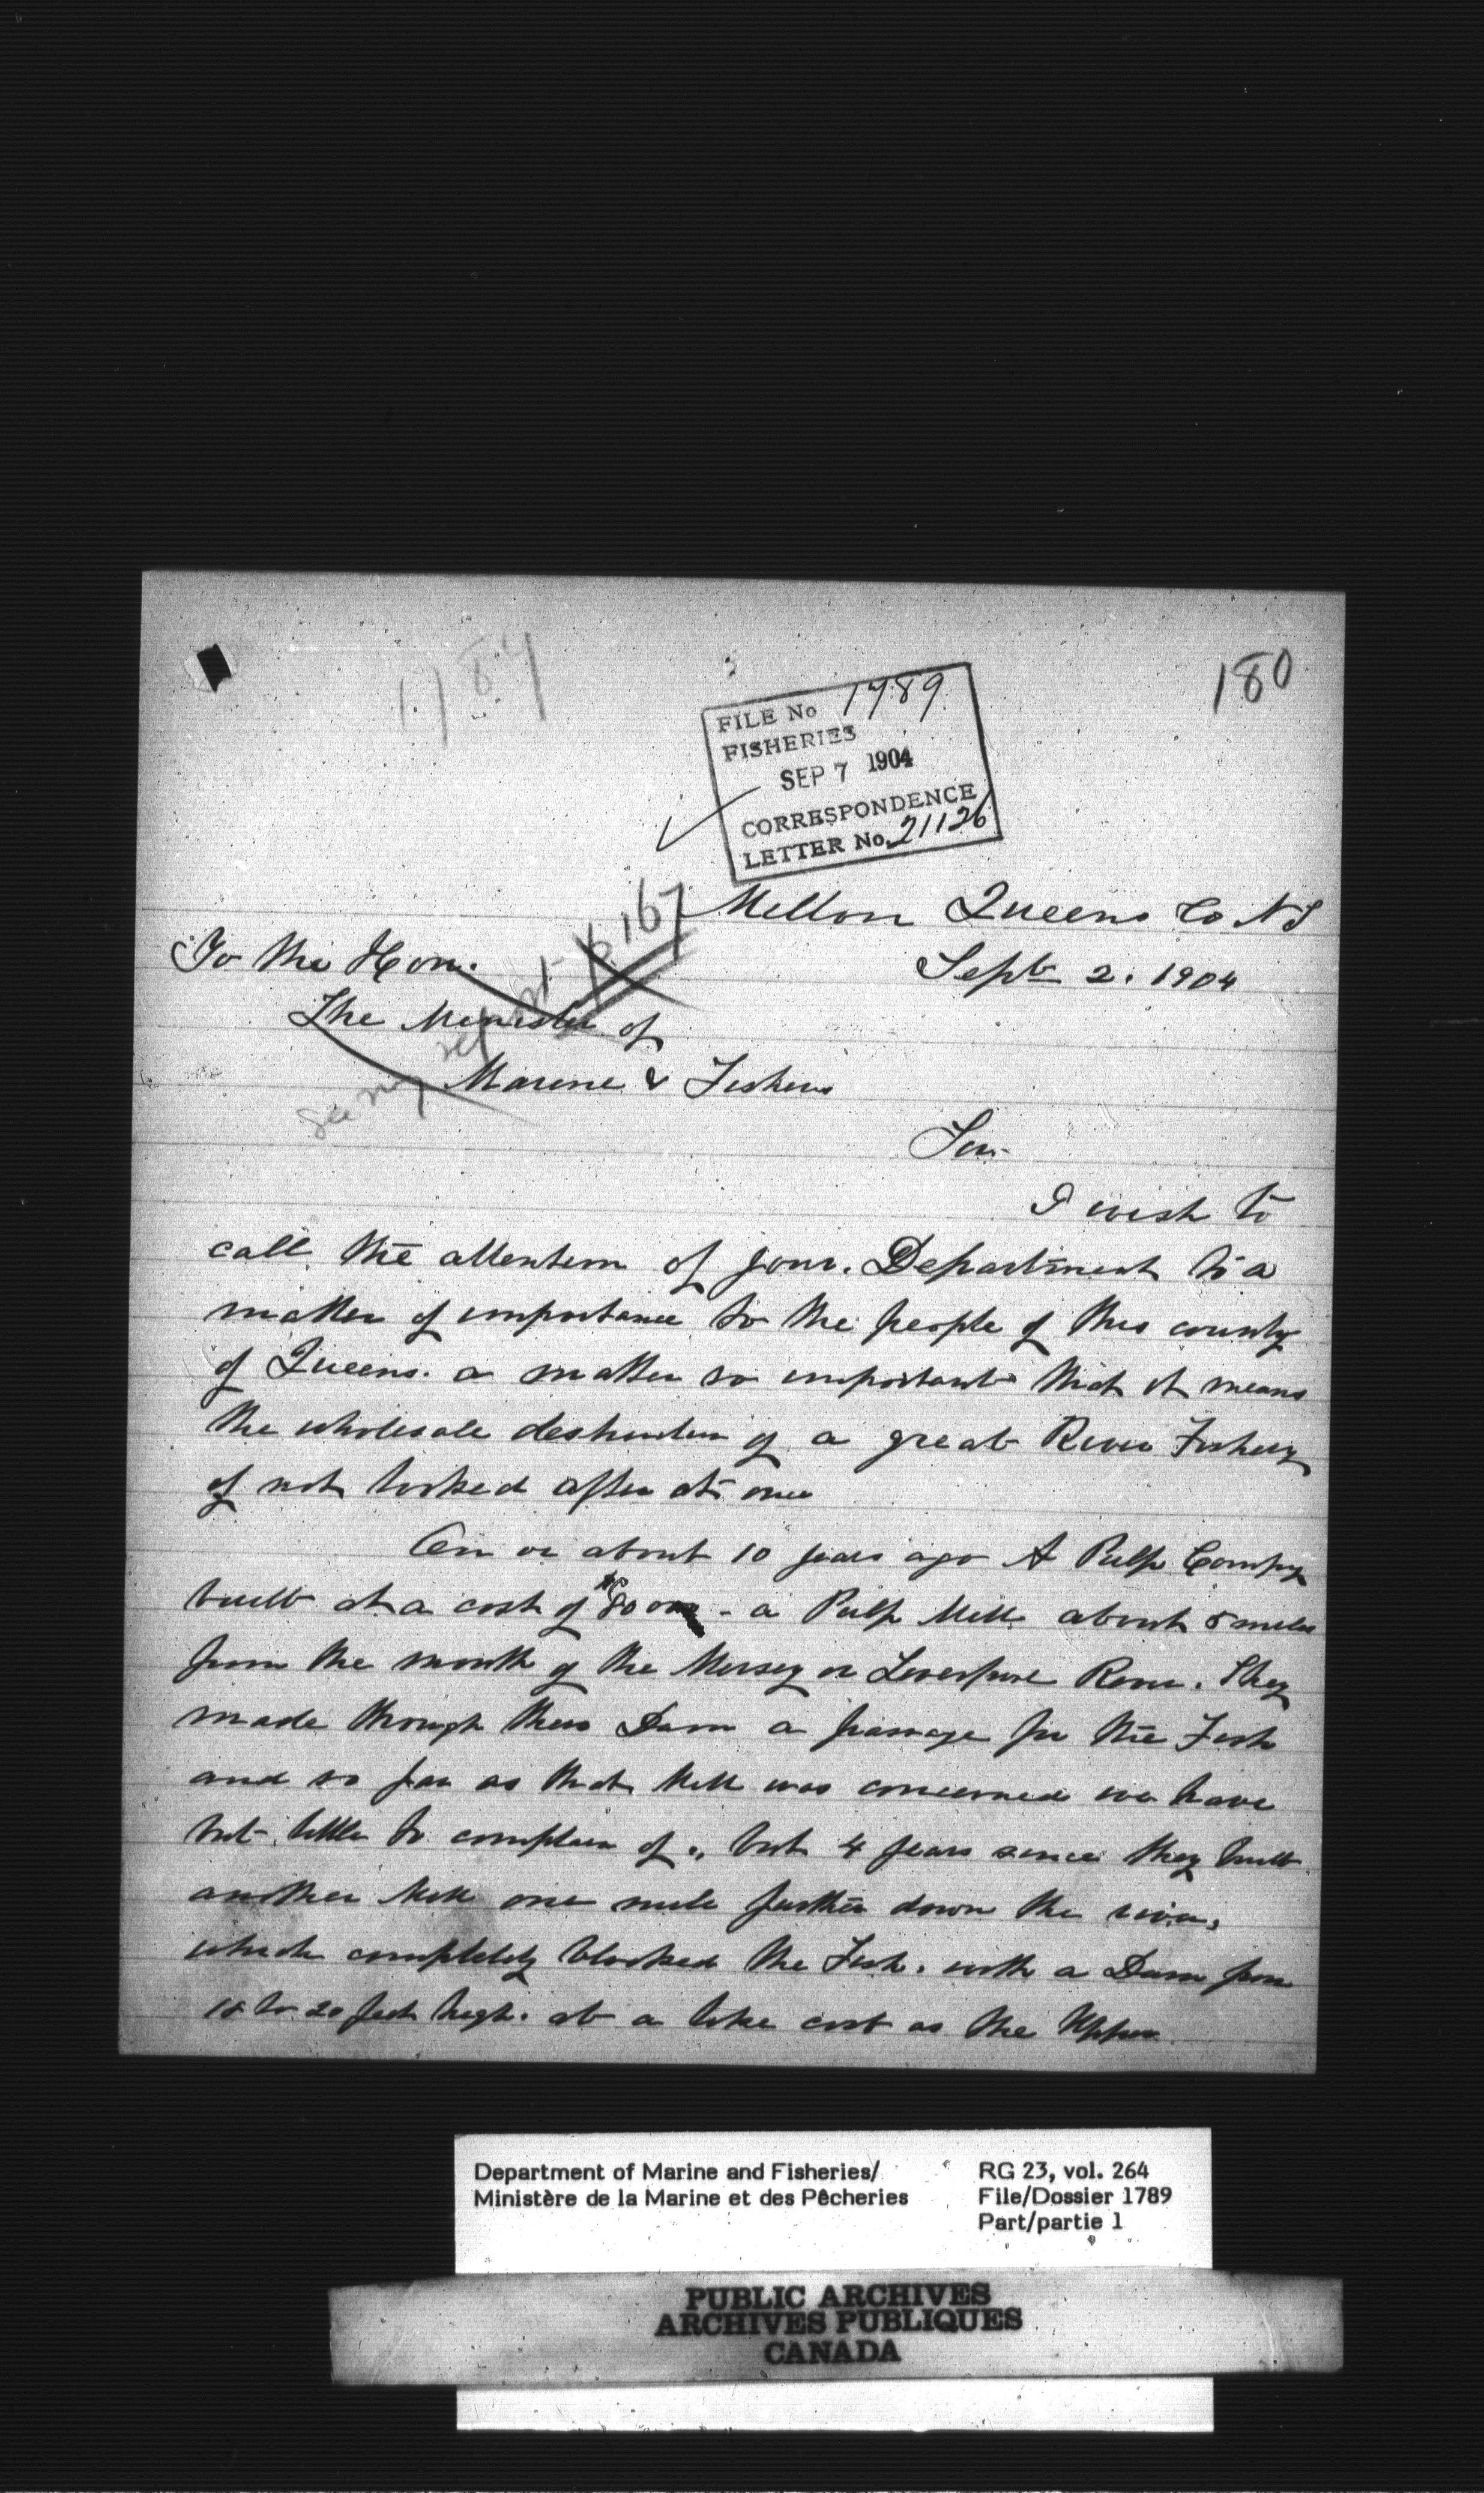 1789
180
FILE No 1789
FISHERIES
SEP 7 1904
CORRESPONDENCE
LETTER No. 21126
p 167
Milton Queens Co N S
Sept 2. 1904
To the Hon.
The Minister of
Marine & Fisheries
Sir
I wish to
call the attention of your Department to a
matter of importance to the people of this county
of Queens. a matter so important that it means
the wholesale destruction of a great River Fishery
if not looked after at once
On or about 10 years ago A Pulp Company
built at a cost of - a Pulp Mill about 5 miles
from the mouth of the Mersey or Liverpool River. They
made through this Dam a passage for the Fish
and so far as that Mill was concerned we have
but little to complain of., but 4 years since they built
another Mill one mile further down the river,
which completely blocked the Fish. with a Dam from
18 to 20 feet high. at a like cost as the Upper
Department of Marine and Fisheries/
Ministère de la Marine et des Pêcheries
RG 23, vol. 264
File/Dossier 1789
Part/partie 1
PUBLIC ARCHIVES
ARCHIVES PUBLIQUES
CANADA